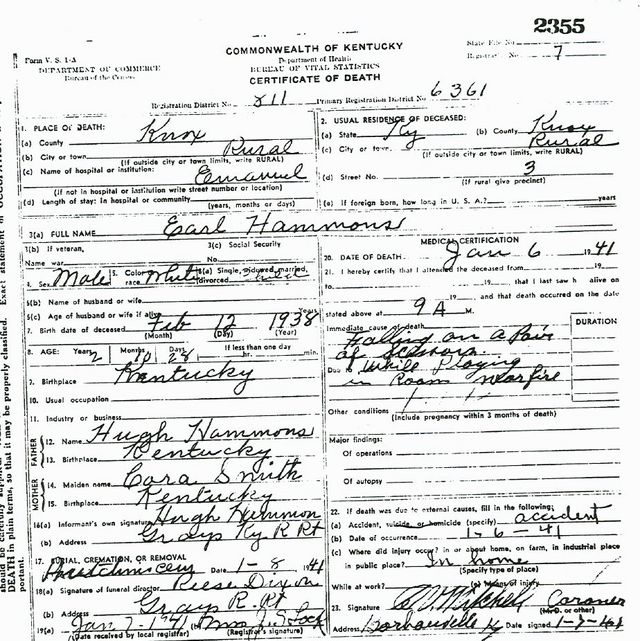 2355
State File No.
Form V. S. 1-A
COMMONWEALTH OF KENTUCKY
Registrar's No. 7
DEPARTMENT OF COMMERCE
Department of Health
Bureau of the Census
BUREAU OF VITAL STATISTICS
CERTIFICATE OF DEATH
Registration District No. 811 Primary Registration District No. 6361
1. PLACE OF DEATH:
(a) County Knox
(b) City or town Rural
(If outside city or town limits, write RURAL)
(c) Name of hospital or institution: Emanuel
(If not in hospital or institution write street number or location)
(d) Length of stay: In hospital or community
(years, months or days)
2. USUAL RESIDENCE OF DECEASED:
(a) State Ky (b) County Knox
(c) City or town Rural
(If outside city or town limits, write RURAL)
(d) Street No. 3
(If rural give precinct)
(e) If foreign born, how long in U. S. A.? years
3(a) FULL NAME Earl Hammons
3(b) If veteran, 3(c) Social Security
Name war No.
4. Sex Male 5. Color or race White 6(a) Single, widowed, married, divorced
6(b) Name of husband or wife
6(c) Age of husband or wife if alive Years
7. Birth date of deceased Feb 12 1938
(Month) (Day) (Year)
8. AGE: Years 2 Months 10 Days 28 If less than one day
hr. min.
9. Birthplace Kentucky
10. Usual occupation
11. Industry or business
FATHER
12. Name Hugh Hammons
13. Birthplace Kentucky
MOTHER
14. Maiden name Cora Smith
15. Birthplace Kentucky
16(a) Informant's own signature Hugh Hammon
(b) Address Grays Ky R Rt
17. BURIAL, CREMATION, OR REMOVAL
Date 1-8 1941
18(a) Signature of funeral director Reese Dixon
(b) Address Grays R. Rt
19(a) Jan 7-1941
(Date received by local registrar) (Registrar's signature)
MEDICAL CERTIFICATION
20. DATE OF DEATH Jan 6 1941
21. I hereby certify that I attended the deceased from 19
to 19 , that I last saw h alive on
19 and that death occurred on the date
stated above at 9 A M.
Immediate cause of death DURATION
Falling on a Pair
of Scissors
Due to While Playing
in Room near fire
Other conditions
(Include pregnancy within 3 months of death)
Major findings:
Of operations
Of autopsy
22. If death was due to external causes, fill in the following:
(a) Accident, suicide or homicide (specify) accident
(b) Date of occurrence 1-6-41
(c) Where did injury occur? in or about home, on farm, in industrial place
in public place? In home
(Specify type of place)
While at work? (e) Means of injury
23. Signature Mitchell Coroner
(M.D. or other)
Address Barbourville Ky Date signed 1-7-41